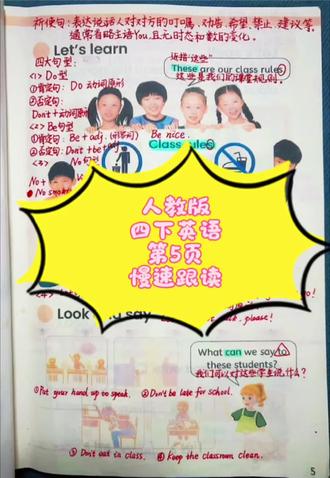 祈使句：表达说话人对对方的叮嘱、劝告、希望、禁止、建议等,
通常省略主语You,且无时态和数的变化。
Let's learn
四大句型:
<1> Do型
①肯定句: Do 动词原形
②否定句:
Don't + 动词原形
<2> Be句型
①肯定句: Be + adj. (形容词) Be nice.
②否定句: Don't + be + adj
<3> No句型
No +
No smoking
近指"这些"
These are our class rules
这些是我们的课堂规则。
Class rules
人教版
四下英语
第5页
慢速跟读
Look and say
please!
What can we say to
these students?
我们可以对这些学生说什么?
①Put your hand up to speak. ②Don't be late for school.
③Don't eat in class. ④Keep the classroom clean.
5